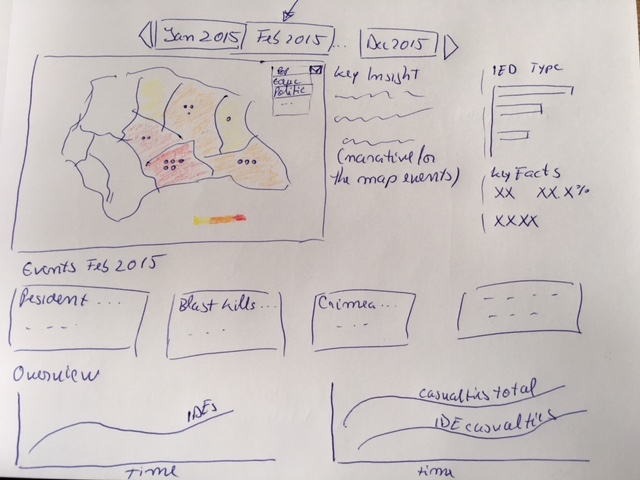 Jan 2015 Feb 2015 ... Dec 2015
By
Politic
...
Key Insight
(narrative for
the map events)
IED Type
Key Facts
XX XX.X%
XXXX
Events Feb 2015
President ...
Blast kills ...
Crimea ...
Overview
IDEs
Time
casualties total
IDE casualties
time